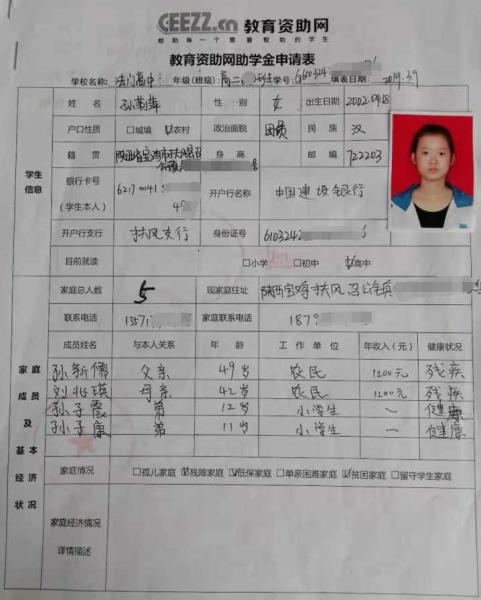 CEEZZ.cn 教育资助网
帮助每一个需要帮助的学生
教育资助网助学金申请表
学校名称: 法门高中 年级(班级): 高二( )班 学号: G610324 填表日期: 2019.3.9
学生信息
姓 名 性 别 女 出生日期 2002.09.18
户口性质 □城镇 ☑农村 政治面貌 团员 民 族 汉
籍 贯 陕西省宝鸡市扶风县 身 高 邮 编 722203
银行卡号 (学生本人) 6217 0041 开户行名称 中国建设银行
开户行支行 扶风支行 身份证号 610324
目前就读 □小学 □初中 ☑高中
家庭成员及基本经济状况
家庭总人数 5 现家庭住址 陕西宝鸡扶风召公镇
联系电话 1357 家庭联系电话 1879
成员姓名 与本人关系 年 龄 工 作 单 位 年收入(元) 健康状况
孙新儒 父亲 49岁 农民 1200元 残疾
刘 瑛 母亲 42岁 农民 1200元 残疾
孙子震 弟 12岁 小学生 — 健康
孙子康 弟 11岁 小学生 — 健康
家庭情况 □孤儿家庭 ☑残障家庭 ☑低保家庭 □单亲困难家庭 ☑贫困家庭 □留守学生家庭
家庭经济情况
详情描述